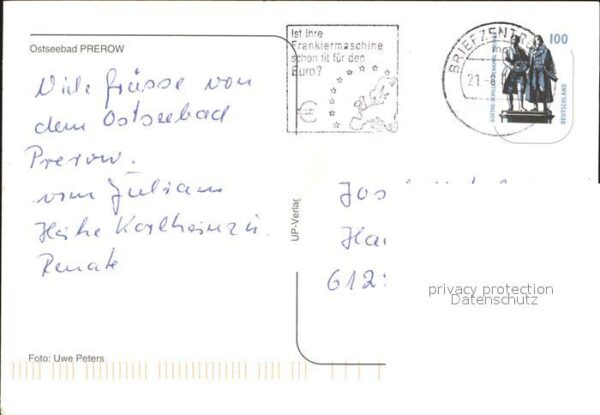 Ostseebad PREROW
Viele Grüsse von
dem Ostseebad
Prerow.
vom Julian
Heike Karlheinz u.
Renate
Foto: Uwe Peters
UP-Verlag
Ist Ihre
Frankiermaschine
schon fit für den
Euro?
€
BRIEFZENTR
21.
100
GOETHE-SCHILLER-DENKMAL WEIMAR
DEUTSCHLAND
Jos
Ha
612
privacy protection
Datenschutz